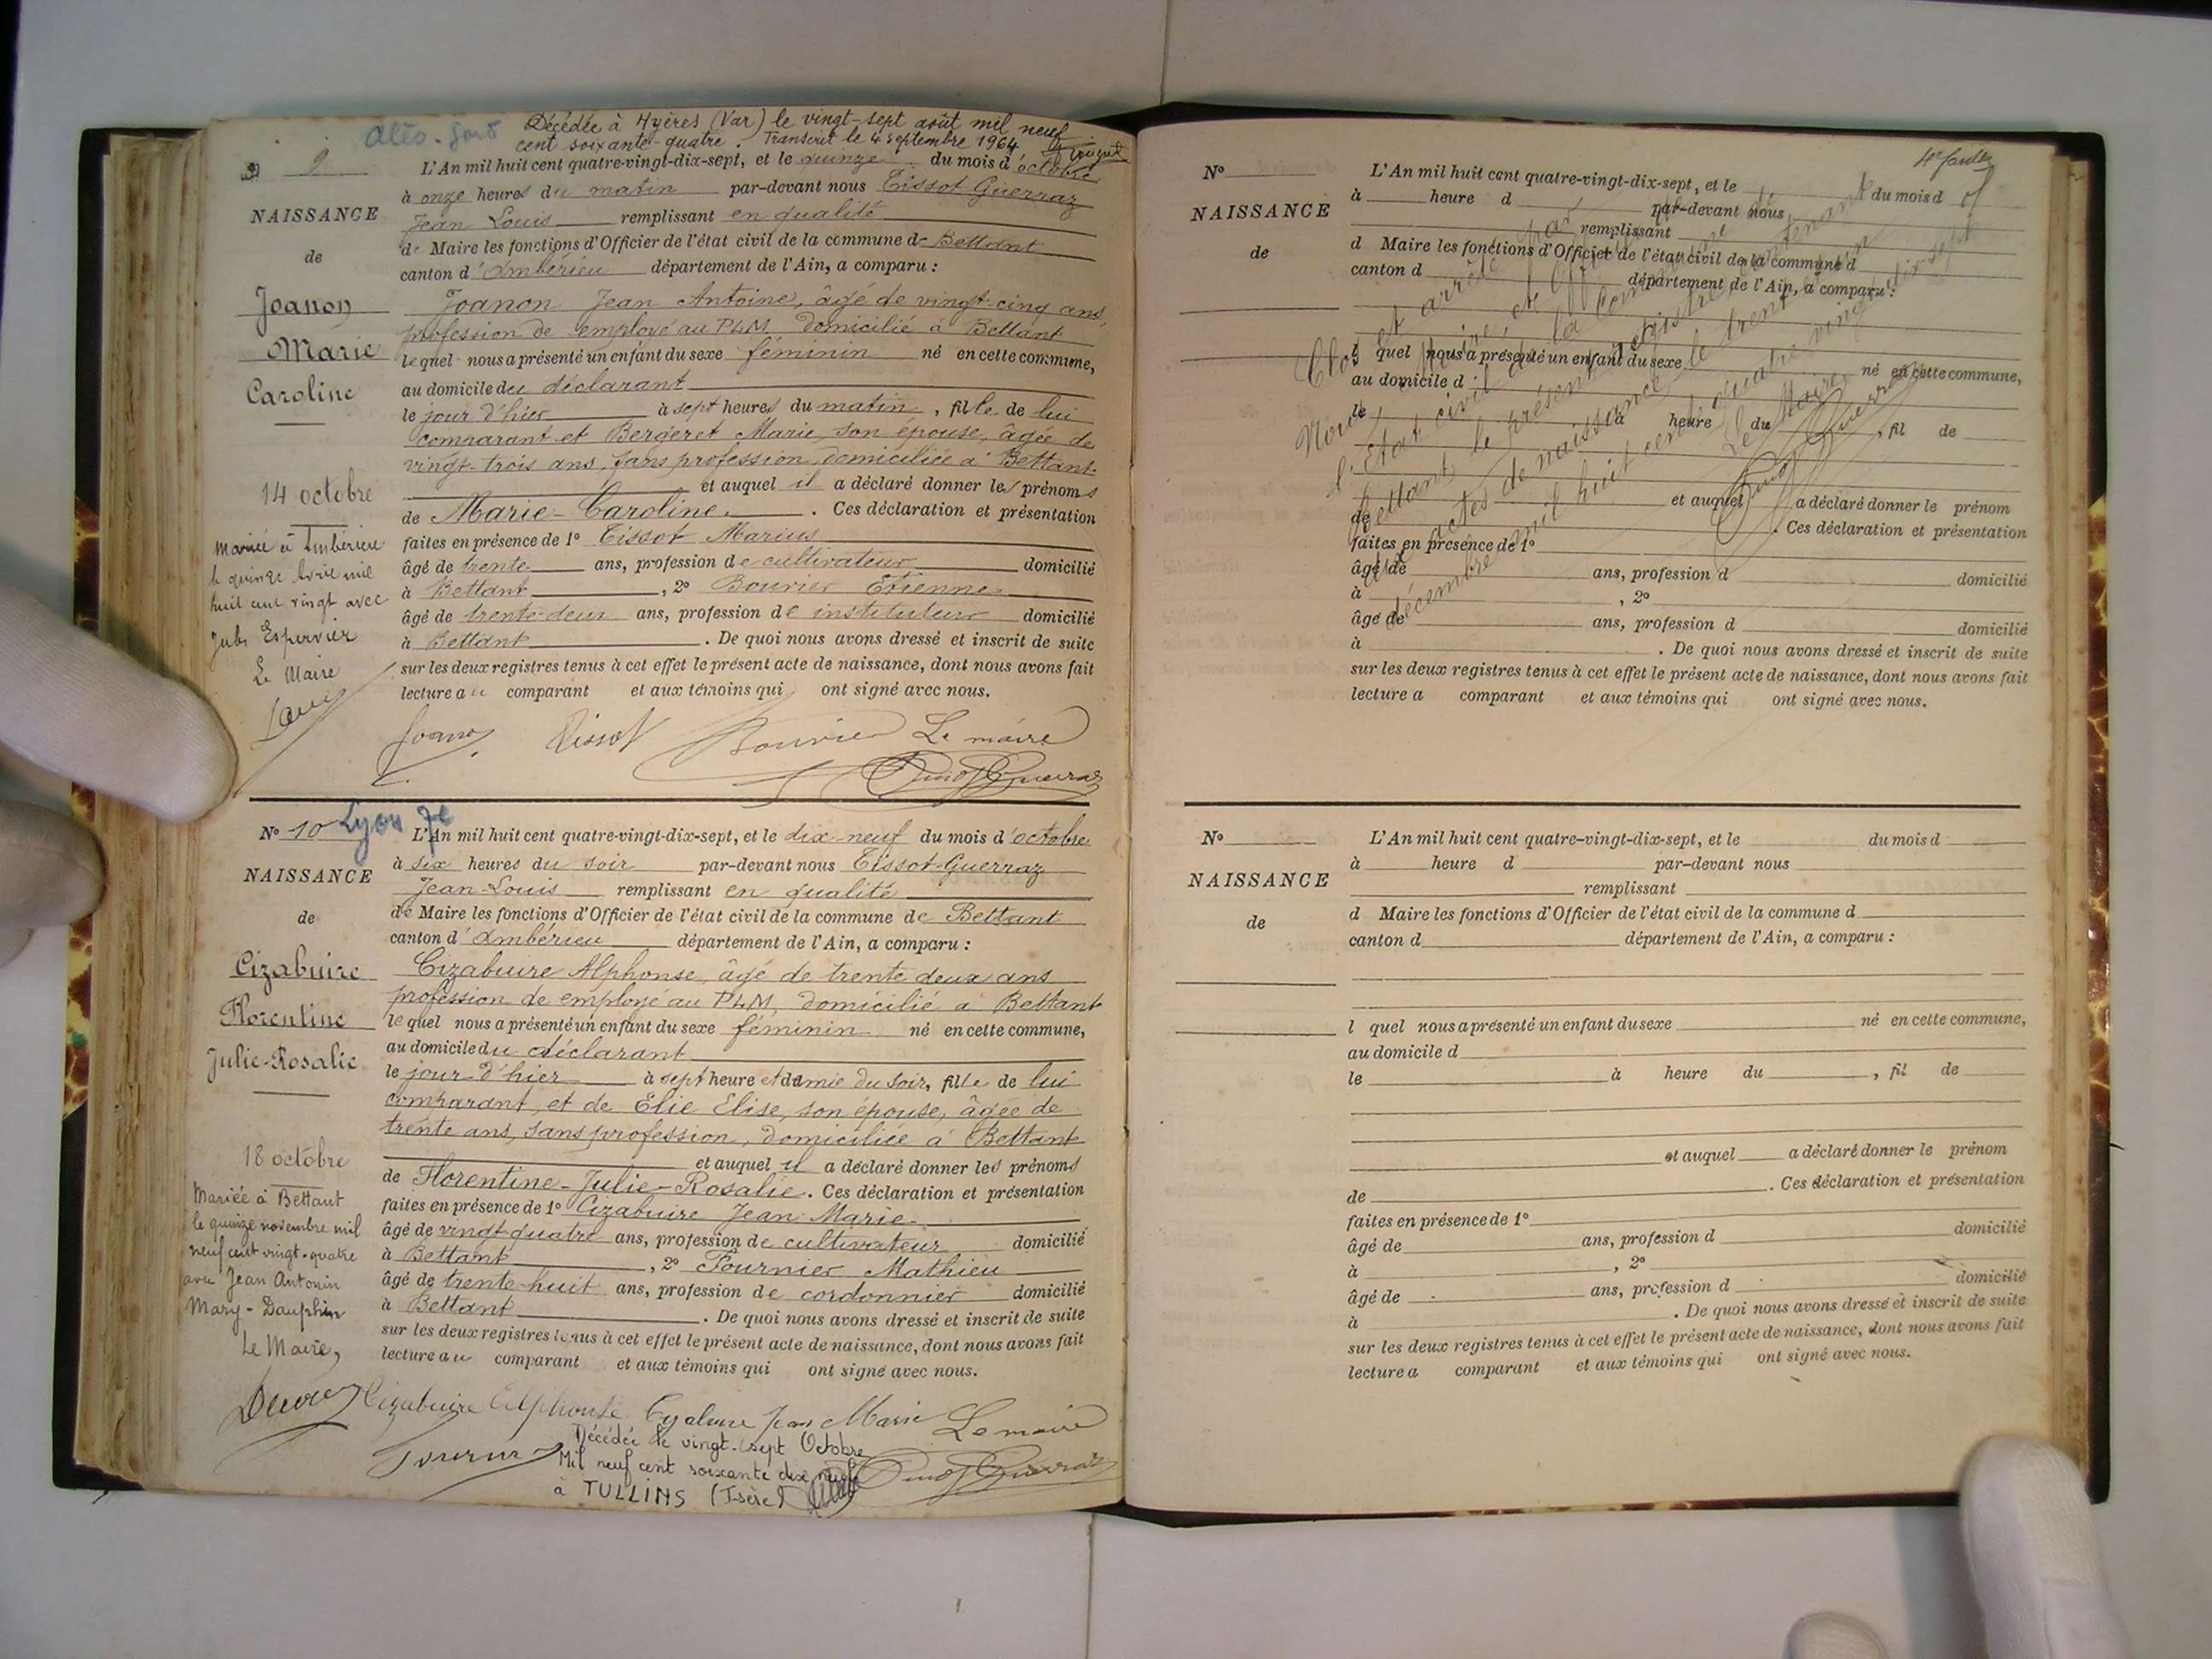 Décédée à Hyères (Var) le vingt-sept août mil neuf
cent soixante-quatre. Transcrit le 4 septembre 1964
9
NAISSANCE
de
Joanon
Marie
Caroline
14 octobre
Mariée à Ambérieu
le quinze avril mil
huit cent vingt avec
Jules Espervier
Le Maire
L'An mil huit cent quatre-vingt-dix-sept, et le quinze du mois d'octobre
à onze heures du matin par-devant nous Tissot Guerraz
Jean Louis remplissant en qualité
de Maire les fonctions d'Officier de l'état civil de la commune de Bettant
canton d'Ambérieu département de l'Ain, a comparu :
Joanon Jean Antoine, âgé de vingt-cinq ans,
profession de employé au PLM, domicilié à Bettant
lequel nous a présenté un enfant du sexe féminin né en cette commune,
au domicile du déclarant
le jour d'hier à sept heures du matin, fille de lui
comparant et Bergeret Marie, son épouse, âgée de
vingt-trois ans, sans profession, domiciliée à Bettant
et auquel il a déclaré donner les prénoms
de Marie-Caroline. Ces déclaration et présentation
faites en présence de 1° Tissot Marius
âgé de trente ans, profession de cultivateur domicilié
à Bettant, 2° Bouvier Etienne
âgé de trente-deux ans, profession de instituteur domicilié
à Bettant. De quoi nous avons dressé et inscrit de suite
sur les deux registres tenus à cet effet le présent acte de naissance, dont nous avons fait
lecture au comparant et aux témoins qui ont signé avec nous.
Joanon Tissot Bouvier Le maire
Tissot Guerraz
N° 10 Lyon 7e
NAISSANCE
de
Cizabuire
Florentine
Julie-Rosalie
18 octobre
Mariée à Bettant
le quinze novembre mil
neuf cent vingt-quatre
avec Jean Antonin
Mary-Dauphin
Le Maire,
L'An mil huit cent quatre-vingt-dix-sept, et le dix-neuf du mois d'octobre
à six heures du soir par-devant nous Tissot-Guerraz
Jean-Louis remplissant en qualité
de Maire les fonctions d'Officier de l'état civil de la commune de Bettant
canton d'Ambérieu département de l'Ain, a comparu :
Cizabuire Alphonse, âgé de trente deux ans
profession de employé au PLM, domicilié à Bettant
lequel nous a présenté un enfant du sexe féminin né en cette commune,
au domicile du déclarant
le jour d'hier à sept heure et demie du soir, fille de lui
comparant, et de Elie Elise, son épouse, âgée de
trente ans, sans profession, domiciliée à Bettant
et auquel il a déclaré donner les prénoms
de Florentine-Julie-Rosalie. Ces déclaration et présentation
faites en présence de 1° Cizabuire Jean Marie
âgé de vingt-quatre ans, profession de cultivateur domicilié
à Bettant, 2° Fournier Mathieu
âgé de trente-huit ans, profession de cordonnier domicilié
à Bettant. De quoi nous avons dressé et inscrit de suite
sur les deux registres tenus à cet effet le présent acte de naissance, dont nous avons fait
lecture au comparant et aux témoins qui ont signé avec nous.
Cizabuire Alphonse Jean Marie Le maire
Décédée le vingt-sept Octobre
Mil neuf cent soixante dix neuf
à TULLINS (Isère)
N°
NAISSANCE
de
L'An mil huit cent quatre-vingt-dix-sept, et le du mois d
à heure d par-devant nous
remplissant
d Maire les fonctions d'Officier de l'état civil de la commune d
canton d département de l'Ain, a comparu :
l quel nous a présenté un enfant du sexe né en cette commune,
au domicile d
le à heure du , fil de
et auquel a déclaré donner le prénom
de . Ces déclaration et présentation
faites en présence de 1°
âgé de ans, profession d domicilié
à , 2°
âgé de ans, profession d domicilié
à . De quoi nous avons dressé et inscrit de suite
sur les deux registres tenus à cet effet le présent acte de naissance, dont nous avons fait
lecture a comparant et aux témoins qui ont signé avec nous.
Clos et arrêté par
Nous, Maire, et Officier de
l'Etat civil de la commune de
Bettant le présent registre contenant
actes de naissance le trente un
décembre mil huit cent quatre vingt dix sept
Le Maire
N°
NAISSANCE
de
L'An mil huit cent quatre-vingt-dix-sept, et le du mois d
à heure d par-devant nous
remplissant
d Maire les fonctions d'Officier de l'état civil de la commune d
canton d département de l'Ain, a comparu :
l quel nous a présenté un enfant du sexe né en cette commune,
au domicile d
le à heure du , fil de
et auquel a déclaré donner le prénom
de . Ces déclaration et présentation
faites en présence de 1°
âgé de ans, profession d domicilié
à , 2°
âgé de ans, profession d domicilié
à . De quoi nous avons dressé et inscrit de suite
sur les deux registres tenus à cet effet le présent acte de naissance, dont nous avons fait
lecture a comparant et aux témoins qui ont signé avec nous.